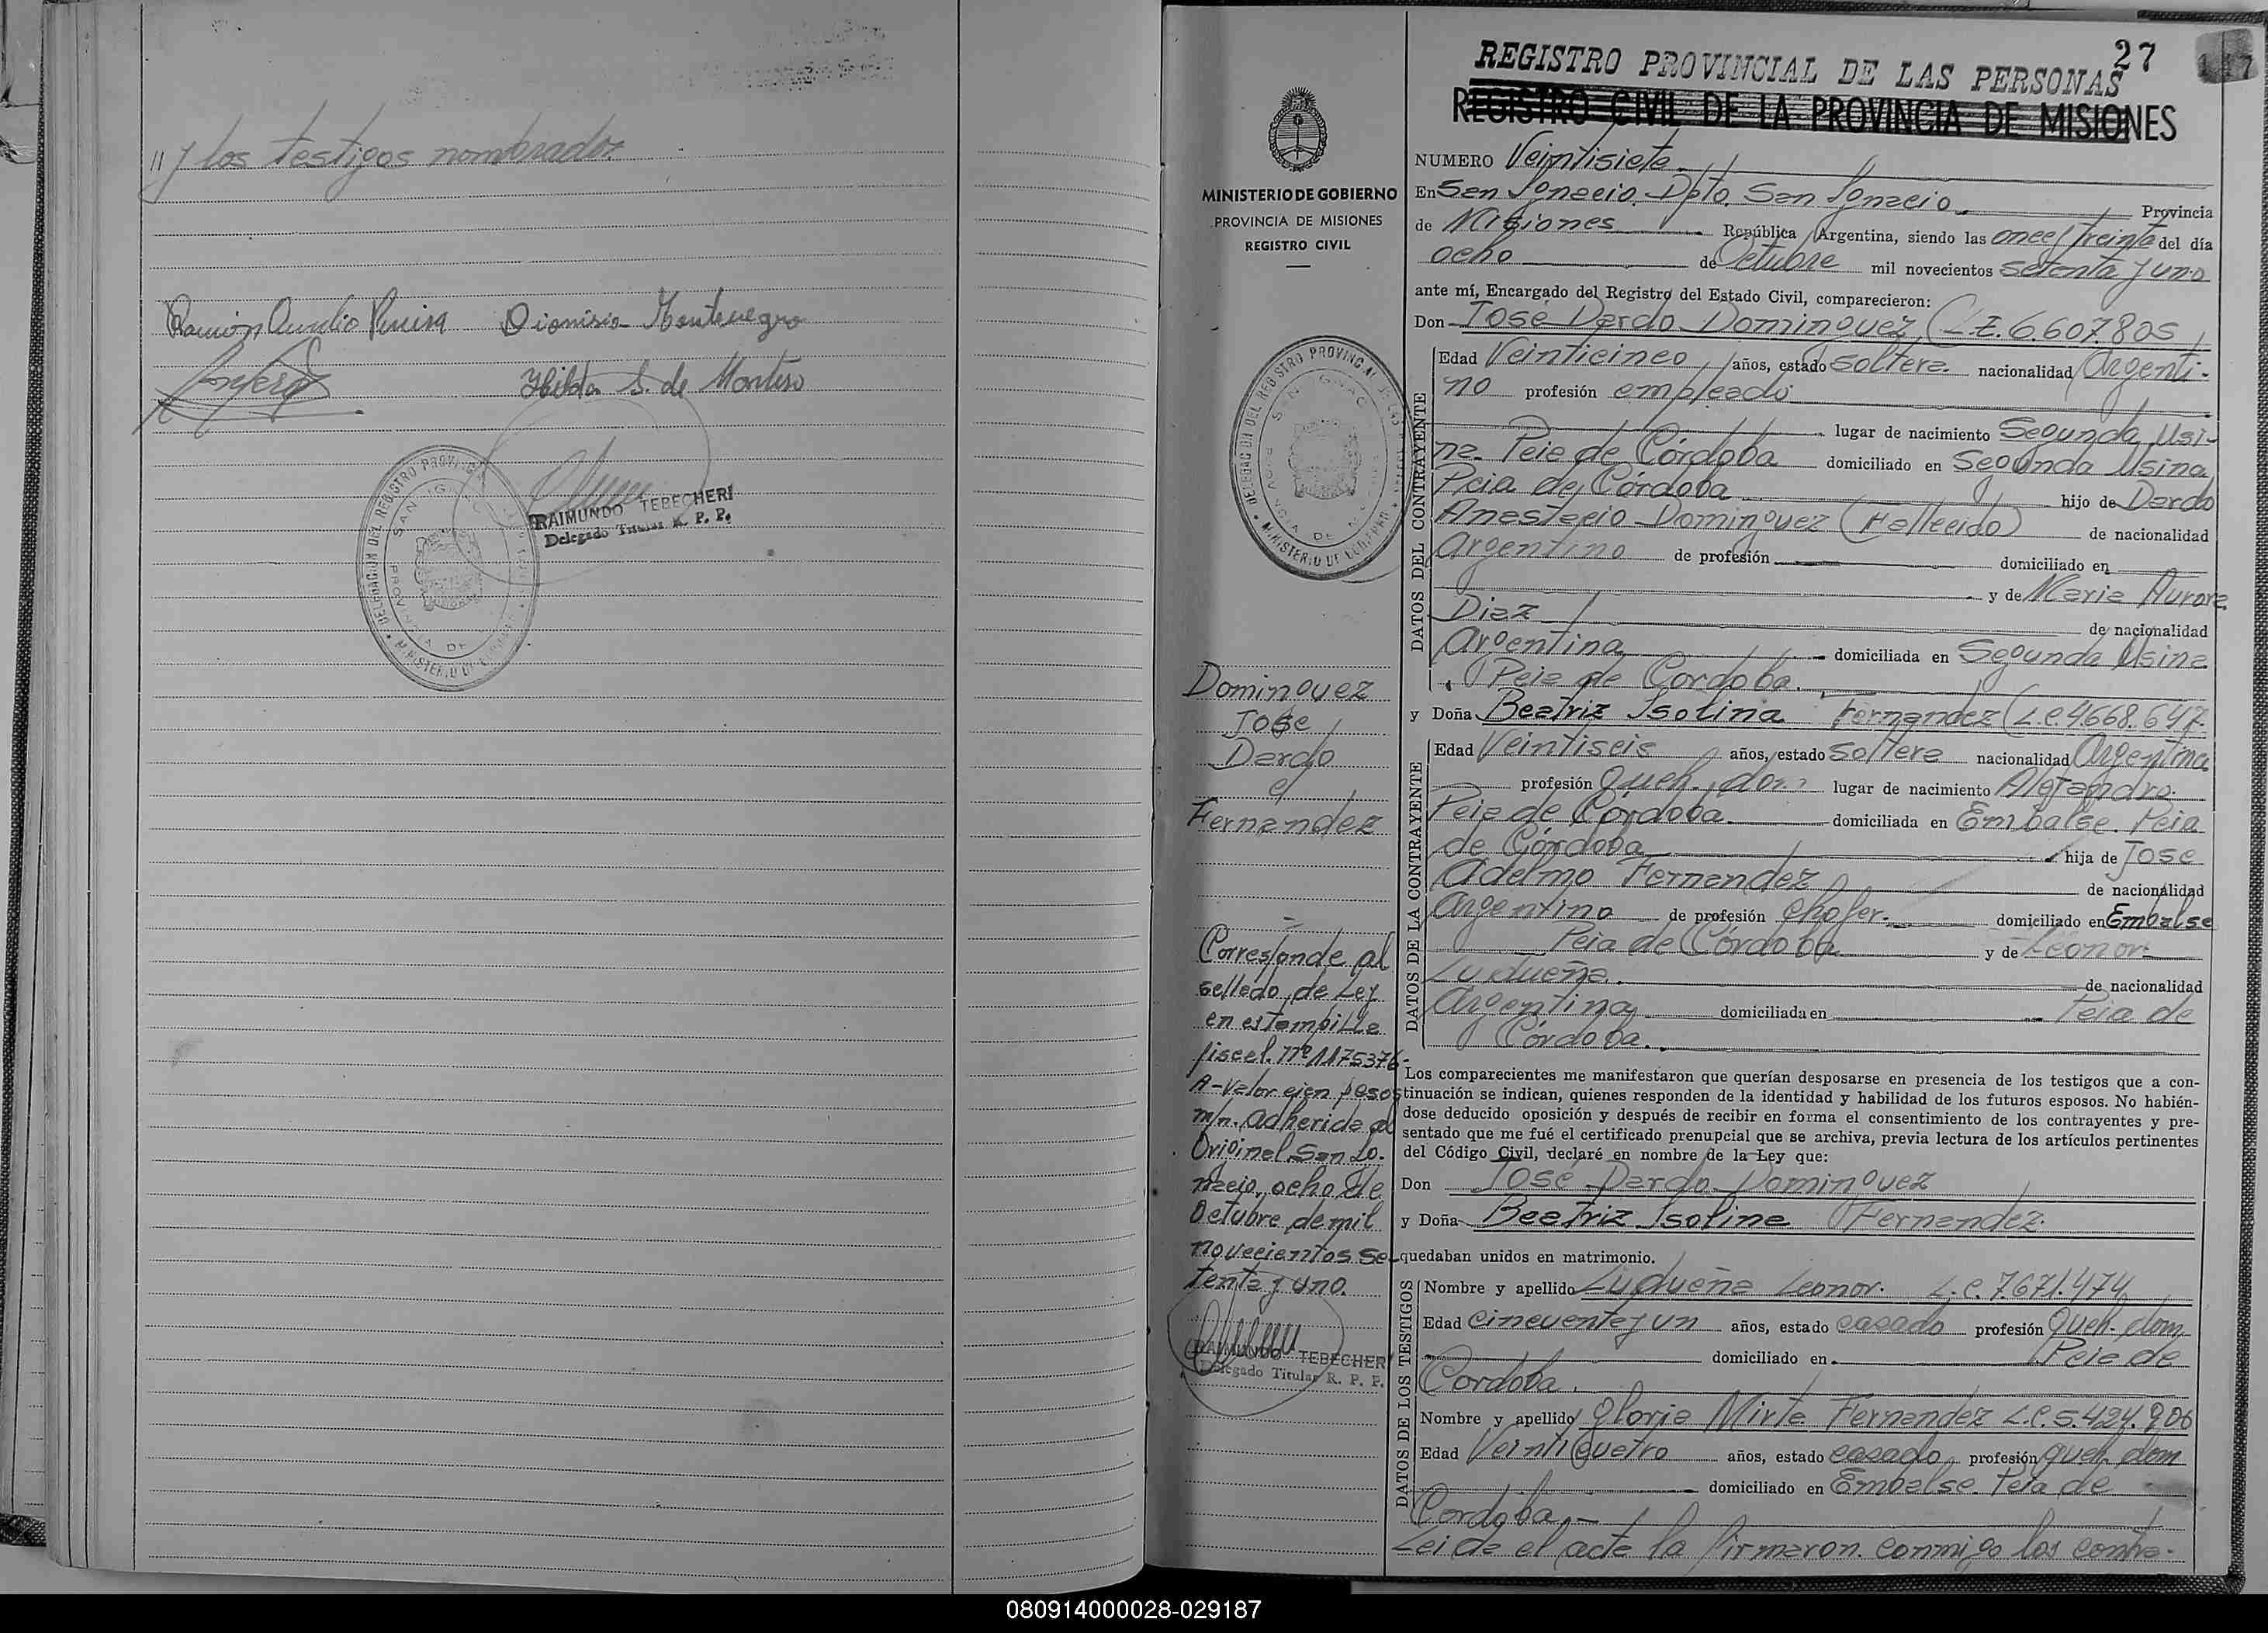 // y los testigos nombrados.
Ramón Aurelio Dionisio Montenegro
Hilda S. de Montero
DELEGACION DEL REGISTRO PROVINCIAL
SAN IGNACIO
PROVINCIA DE
MINISTERIO DE GOBIERNO
RAIMUNDO TEBECHERI
Delegado Titular R. P. P.
27
REGISTRO PROVINCIAL DE LAS PERSONAS
REGISTRO CIVIL DE LA PROVINCIA DE MISIONES
MINISTERIO DE GOBIERNO
PROVINCIA DE MISIONES
REGISTRO CIVIL
NUMERO Veintisiete
En San Ignacio. Dpto. San Ignacio. Provincia
de Misiones República Argentina, siendo las once y treinta del día
ocho de Octubre mil novecientos setenta y uno
ante mí, Encargado del Registro del Estado Civil, comparecieron:
Don José Dardo Dominguez (L.E. 6.607.805
DATOS DEL CONTRAYENTE
Edad Veinticinco años, estado soltero. nacionalidad Argenti-
no profesión empleado
lugar de nacimiento Segunda Usi-
na Pcia de Córdoba domiciliado en Segunda Usina
Pcia de Córdoba hijo de Dardo
Anastacio Dominguez (Fallecido) de nacionalidad
Argentino de profesión domiciliado en
y de Maria Aurora
Diaz de nacionalidad
Argentina domiciliada en Segunda Usina
Pcia de Cordoba.
y Doña Beatriz Isolina Fernandez (L.C. 4.668.647.
DATOS DE LA CONTRAYENTE
Edad Veintiseis años, estado soltera nacionalidad Argentina
profesión Queh. dom. lugar de nacimiento Alejandro.
Pcia de Córdoba domiciliada en Embalse. Pcia
de Córdoba hija de José
Adelmo Fernandez de nacionalidad
Argentino de profesión chofer. domiciliado en Embalse
Pcia de Córdoba y de Leonor
Ludueña. de nacionalidad
Argentina domiciliada en Pcia de
Córdoba.
Los comparecientes me manifestaron que querían desposarse en presencia de los testigos que a con-
tinuación se indican, quienes responden de la identidad y habilidad de los futuros esposos. No habién-
dose deducido oposición y después de recibir en forma el consentimiento de los contrayentes y pre-
sentado que me fué el certificado prenupcial que se archiva, previa lectura de los artículos pertinentes
del Código Civil, declaré en nombre de la Ley que:
Don José Dardo Dominguez
y Doña Beatriz Isolina Fernandez.
quedaban unidos en matrimonio.
DATOS DE LOS TESTIGOS
Nombre y apellido Ludueña Leonor. L.C. 7.671.474
Edad cincuenta y un años, estado casado profesión Queh. dom
domiciliado en Pcia de
Cordoba.
Nombre y apellido Gloria Mirta Fernandez L.C. 5.424.906
Edad Veinticuatro años, estado casado profesión queh. dom
domiciliado en Embalse. Pcia de
Cordoba.-
Leida el acta la firmaron conmigo los contra-
Dominguez
José
Dardo
c/
Fernandez
Corresponde al
sellado de Ley
en estampilla
fiscal. Nº 1175376-
A-Valor cien pesos
m/n. Adherida al
Original San Ig-
nacio, ocho de
Octubre de mil
novecientos se-
tenta y uno.
RAIMUNDO TEBECHERI
Delegado Titular R. P. P.
080914000028-029187